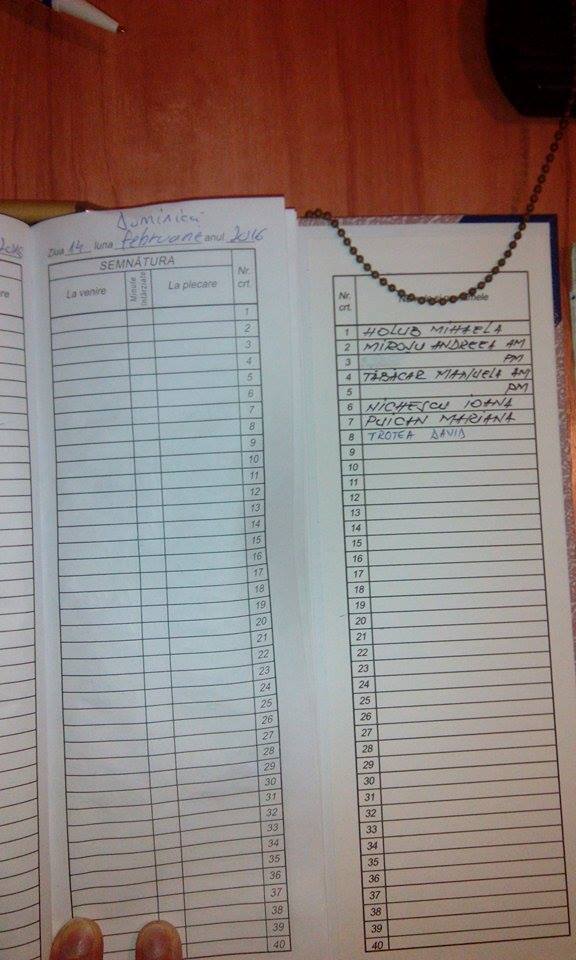 2015
Duminică
Ziua 14 luna februarie anul 2016
SEMNĂTURA
La venire
Minute întârziate
La plecare
Nr. crt.
1
2
3
4
5
6
7
8
9
10
11
12
13
14
15
16
17
18
19
20
21
22
23
24
25
26
27
28
29
30
31
32
33
34
35
36
37
38
39
40
Nr. crt.
1 HOLUB MIHAELA
2 MIROJU ANDREEA AM
3 PM
4 TĂBĂCAR MANUELA AM
5 PM
6 NICHESCU IOANA
7 PUICAN MARIANA
8 TROTEA DAVID
9
10
11
12
13
14
15
16
17
18
19
20
21
22
23
24
25
26
27
28
29
30
31
32
33
34
35
36
37
38
39
40